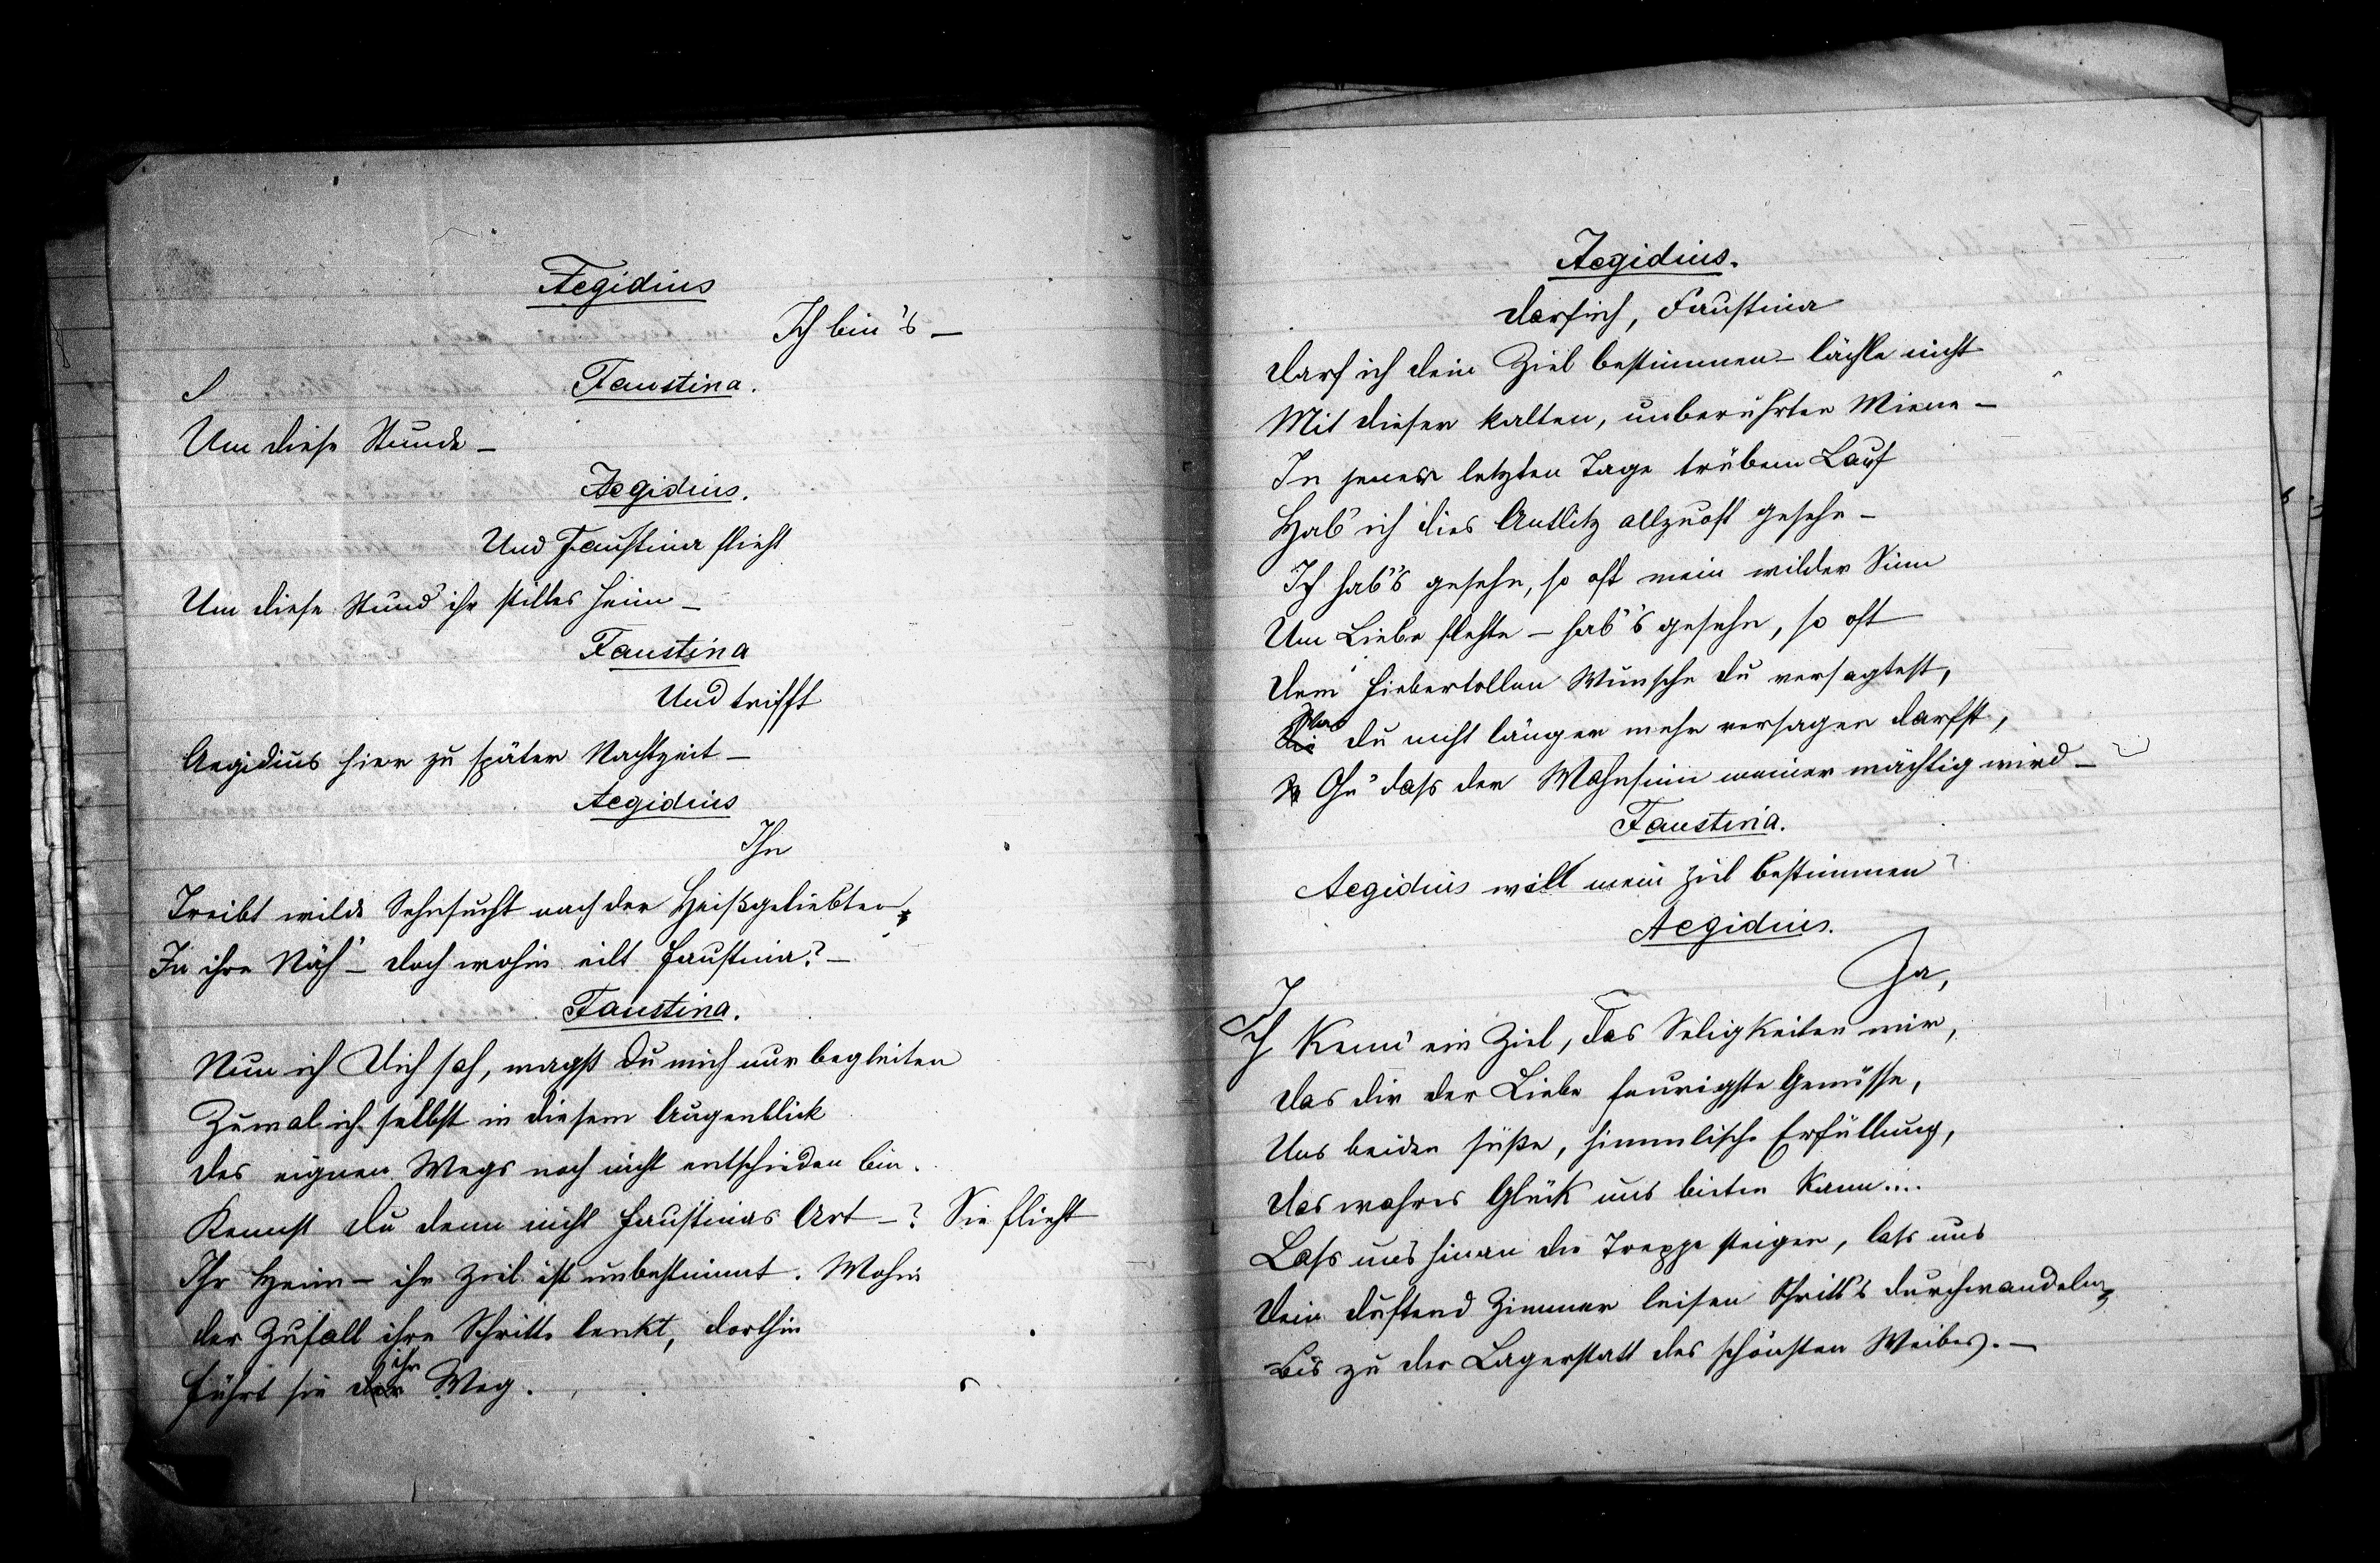 Aegidius
Ich bin's –
Faustina.
Um diese Stunde –
Aegidius.
Und Faustina flieht
Um diese Stund' ihr stilles Heim –
Faustina
Und trifft
Aegidius hier zu später Nachtzeit –
Aegidius
Ihn
Treibt wilde Sehnsucht nach der Heißgeliebten
In ihre Näh' – doch wohin eilt Faustina? –
Faustina.
Nun ich Dich sah, magst du mich nur begleiten
Zumal ich selbst in diesem Augenblick
Des eignen Wegs noch nicht entschieden bin.
Kennst du denn nicht Faustinas Art –? Sie flieht
Ihr Heim – ihr Ziel ist unbestimmt. Wohin
Der Zufall ihre Schritte lenkt, dorthin
Führt sie ihr Weg.
Aegidius.
Darf ich, Faustina
Darf ich dein Ziel bestimmen – lächle nicht
Mit dieser kalten, unberührten Miene –
In jener letzten Tage trübem Lauf
Hab' ich dies Antlitz allzuoft gesehn –
Ich hab's gesehn, so oft mein wilder Sinn
Um Liebe flehte – hab's gesehn, so oft
Dem fiebertollen Wunsche du versagtest,
Was du nicht länger mehr versagen darfst,
Eh' dass der Wahnsinn meiner mächtig wird –
Faustina.
Aegidius will mein Ziel bestimmen?
Aegidius.
Ja,
Ich kenn' ein Ziel, das Seligkeiten mir,
Das dir der Liebe feurigste Genüsse,
Uns beiden süße, himmlische Erfüllung,
Das wahres Glück uns bieten kann....
Lass uns hinan die Treppe steigen, lass uns
Dein duftend Zimmer leisen Schritt's durchwandeln,
Bis zu der Lagerstatt des schönsten Weibes. –